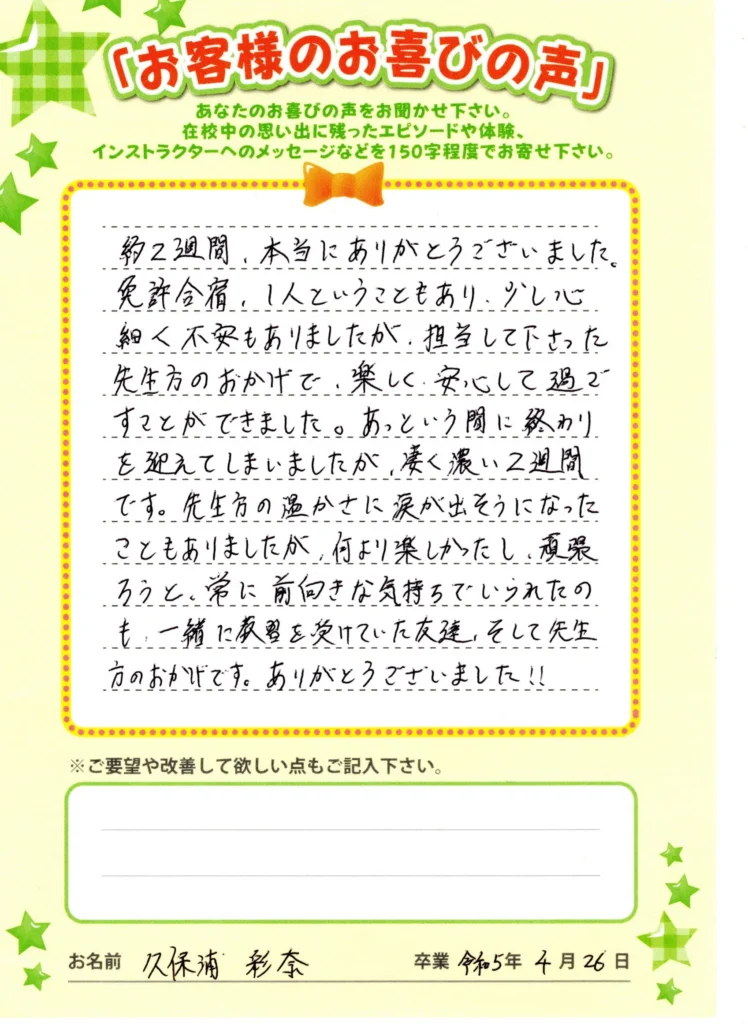 「お客様のお喜びの声」
あなたのお喜びの声をお聞かせ下さい。
在校中の思い出に残ったエピソードや体験、
インストラクターへのメッセージなどを150字程度でお寄せ下さい。
約2週間、本当にありがとうございました。
免許合宿、1人ということもあり、少し心
細く不安もありましたが、担当して下さった
先生方のおかげで、楽しく、安心して過ご
すことができました。あっという間に終わり
を迎えてしまいましたが、凄く濃い2週間
です。先生方の温かさに涙が出そうになった
こともありましたが、何より楽しかったし、頑張
ろうと、常に前向きな気持ちでいられたの
も、一緒に教習を受けていた友達、そして先生
方のおかげです。ありがとうございました!!
※ご要望や改善して欲しい点もご記入下さい。
お名前 久保浦 彩奈 卒業 令和5年 4月 26日